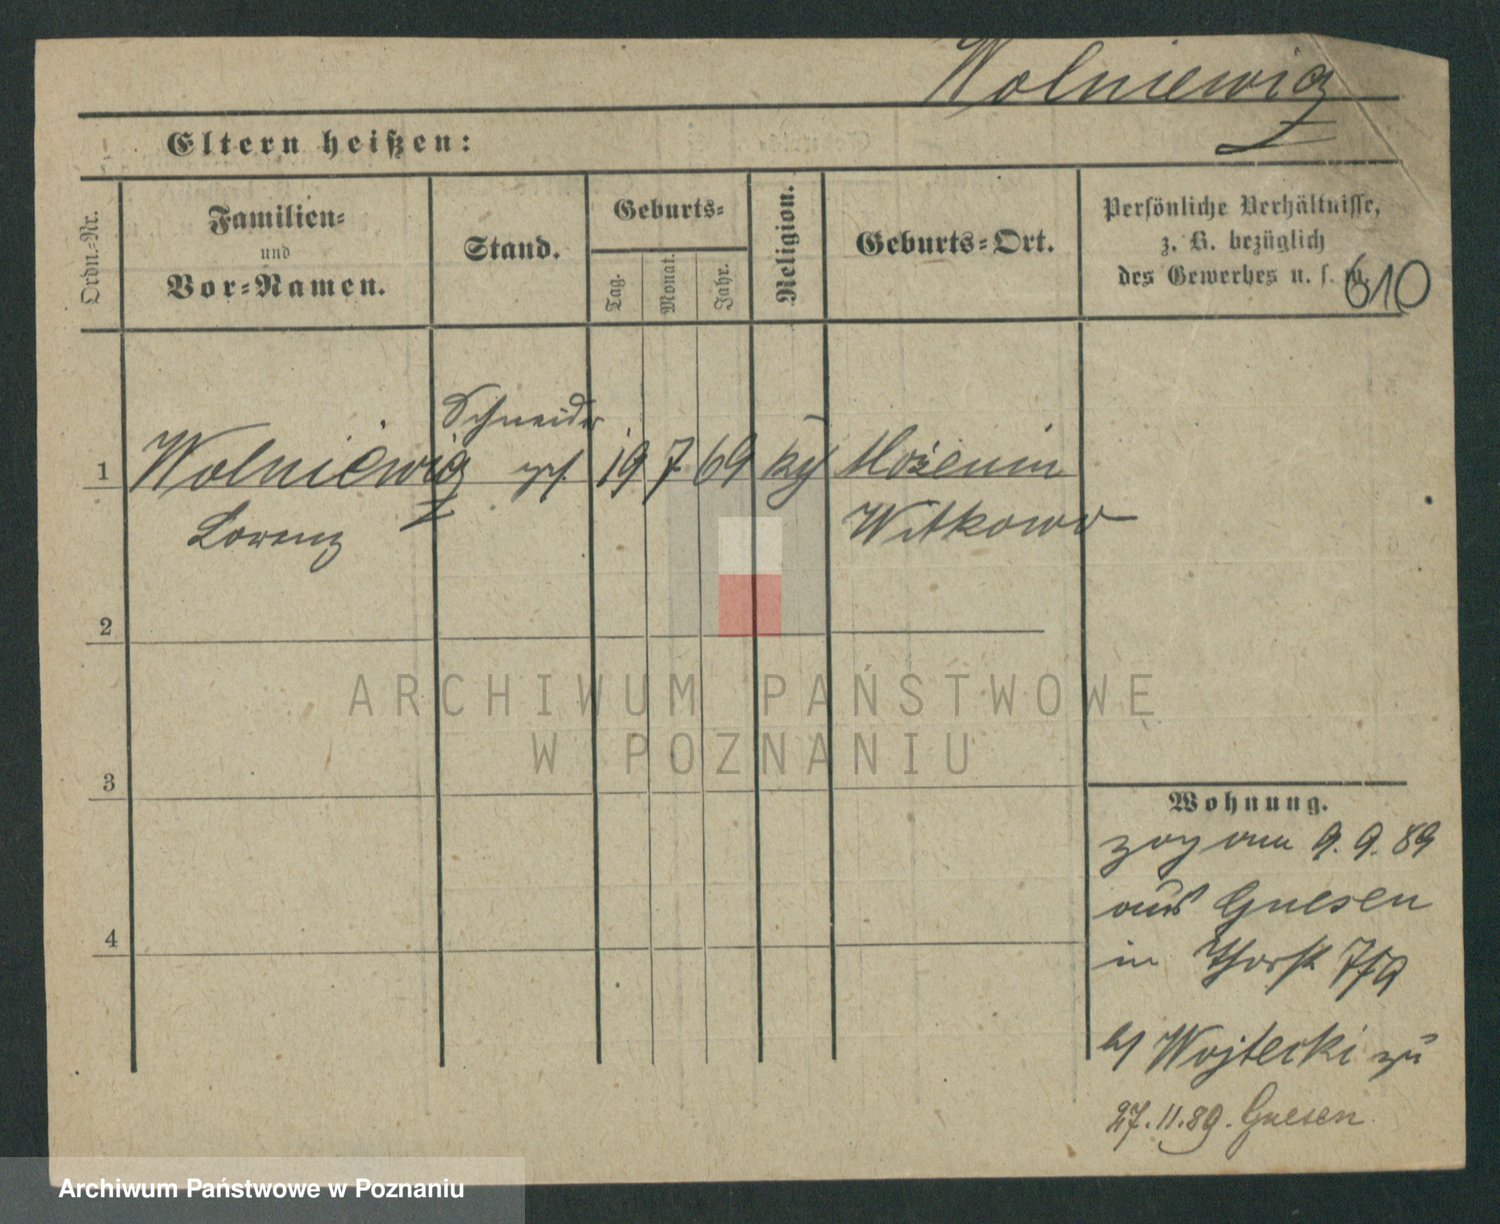 Wolniewicz
Eltern heißen:
Ordn.-Nr.
Familien-
und
Vor-Namen.
Stand.
Geburts-
Tag.
Monat.
Jahr.
Religion.
Geburts-Ort.
Persönliche Verhältnisse,
z. B. bezüglich
des Gewerbes u. s. w.
610
Schneider
1 Wolniewicz 19 7 69
Lorenz Witkowo
2
3
4
ARCHIWUM PAŃSTWOWE
W POZNANIU
Wohnung.
zog am 9. 9. 89
aus Gnesen
in
b/ Wojtecki zu
27.11.89. Gnesen
Archiwum Państwowe w Poznaniu